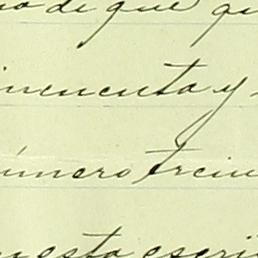 no de que qu
incuenta y
úmero trein
esta escri